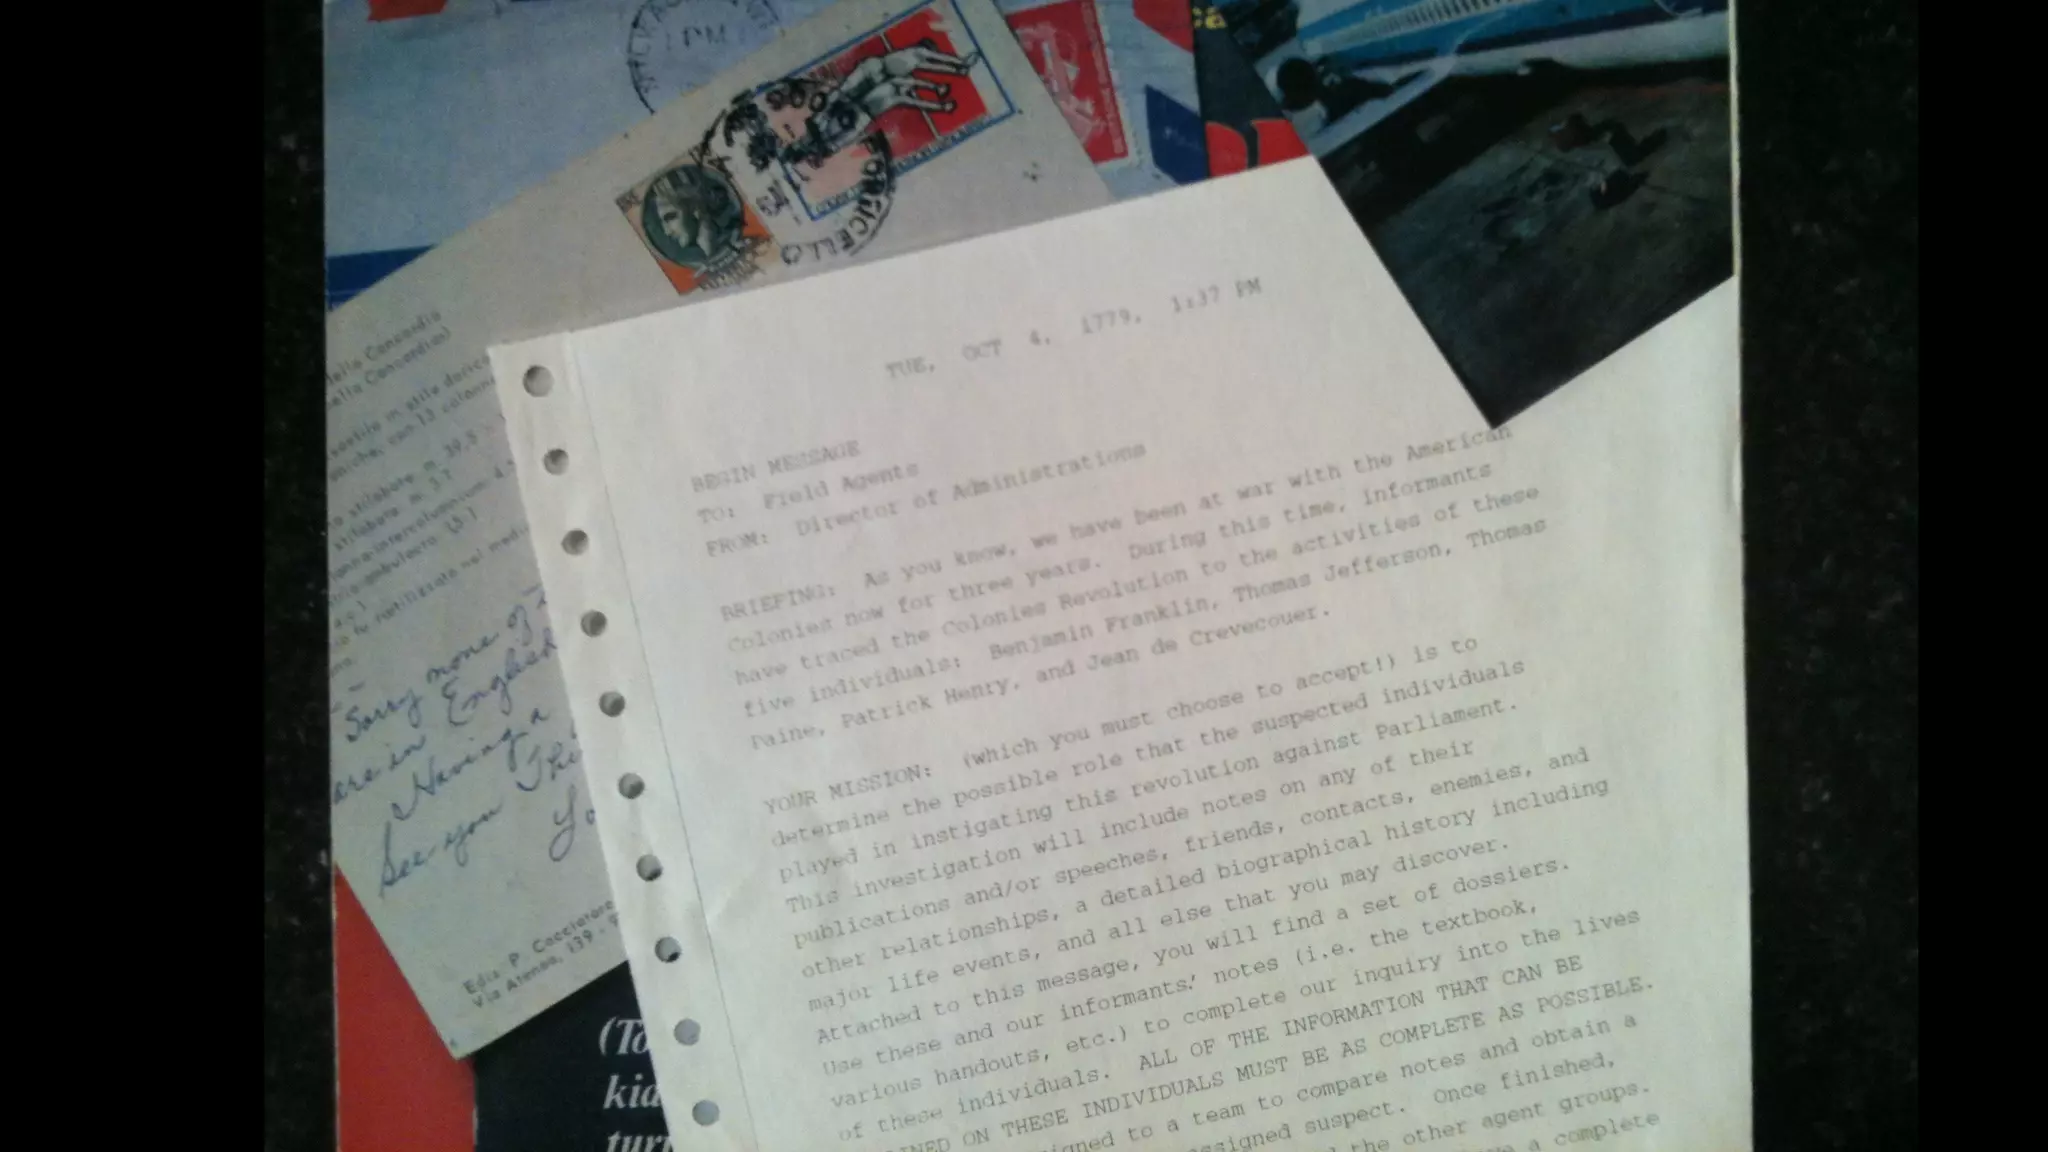 PM
PORTICELLO
TUE, OCT 4, 1779, 1:37 PM
BEGIN MESSAGE
TO: Field Agents
FROM: Director of Administrations
BRIEFING: As you know, we have been at war with the American
Colonies now for three years. During this time, informants
have traced the Colonies Revolution to the activities of these
five individuals: Benjamin Franklin, Thomas Jefferson, Thomas
Paine, Patrick Henry, and Jean de Crevecouer.
YOUR MISSION: (which you must choose to accept!) is to
determine the possible role that the suspected individuals
played in instigating this revolution against Parliament.
This investigation will include notes on any of their
publications and/or speeches, friends, contacts, enemies, and
other relationships, a detailed biographical history including
major life events, and all else that you may discover.
Attached to this message, you will find a set of dossiers.
Use these and our informants' notes (i.e. the textbook,
various handouts, etc.) to complete our inquiry into the lives
of these individuals. ALL OF THE INFORMATION THAT CAN BE
ON THESE INDIVIDUALS MUST BE AS COMPLETE AS POSSIBLE.
to a team to compare notes and obtain a
suspect. Once finished,
the other agent groups.
a complete
della Concordia
Concordia)
in stile dorico
con 13 colonne
stilobate m. 39,5
Sorry none of
are in English
Having a
See you
Edit. P. Cacciatore
Via Atenea, 139
(To
kid
turn